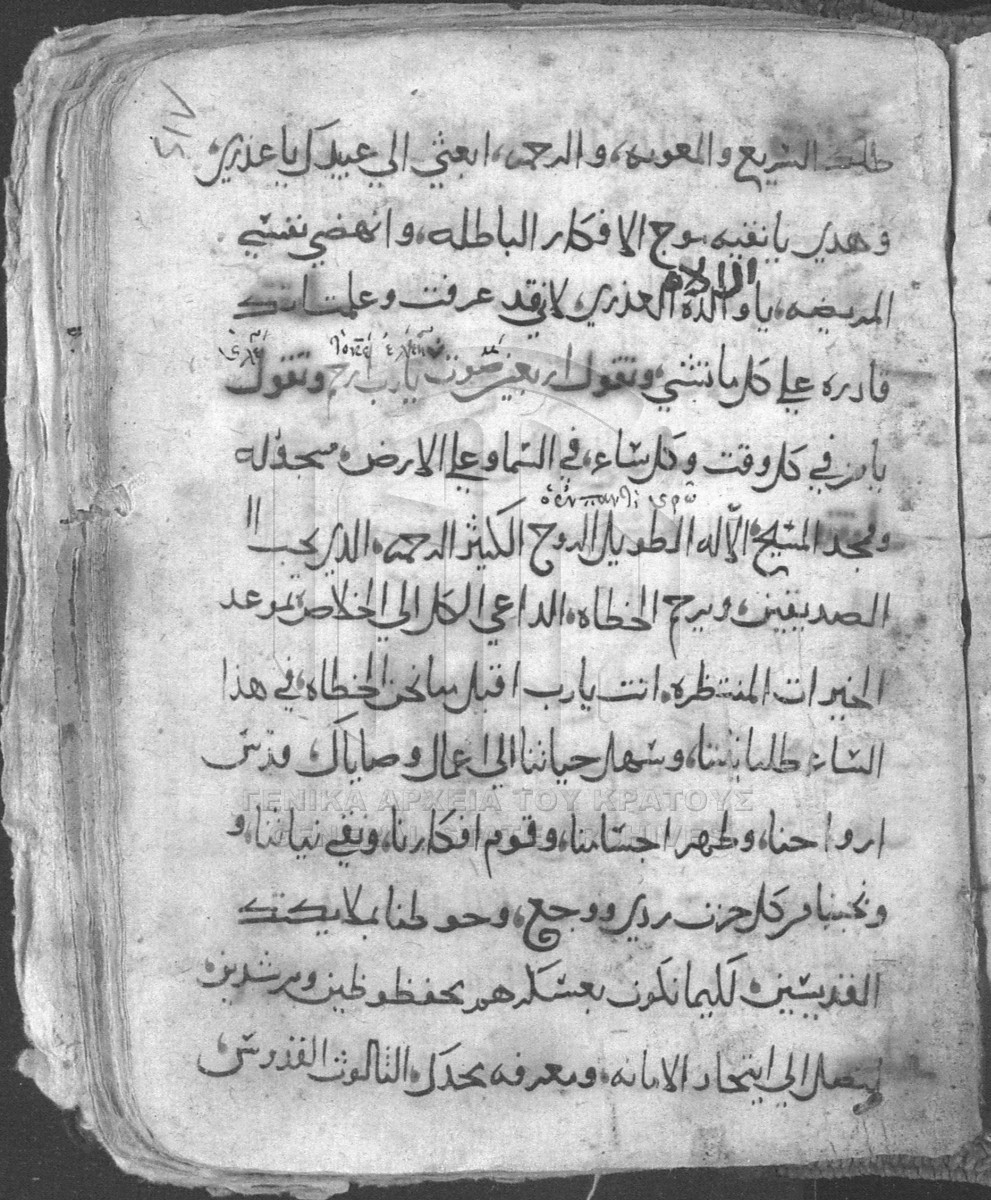 ٤١٧
طلبت السريع والمعونه، والرحمه، ابعثي الي عبيدك ياعذري،
وهدي يانقيه موج الافكار الباطله، وانهضي نفسي
المريضه، يا والدة الاله العذري، لاني قد عرفت وعلمت انك
قادره علي كل ماتشي، وتقول اربعين صوت يارب ارحم وتقول
يامن في كل وقت وكل ساعه، في السما وعلي الارض، مسجود له
وممجد المسيح الاله الطويل الروح الكثير الرحمه، الذي يحب
الصديقين، ويرحم الخطاه، الداعي الكل الي الخلاص بموعد
الخيرات المنتظره، انت يارب اقبل منا نحن الخطاه، في هذا
الساعه طلباتنا، وسهل حياتنا الي اعمال وصاياك، قدس
ارواحنا، وطهر اجسامنا، وقوم افكارنا، ونقي نياتنا، و
ونجينا من كل حزن ردي ووجع، وحوطنا بملايكتك
القديسين، لكيما نكون بعسكرهم محفظوظين ومرشدين،
لنصل الي اتحاد الامانه، ومعرفه مجدك، الثالوث القدوس،
ΓΕΝΙΚΑ ΑΡΧΕΙΑ ΤΟΥ ΚΡΑΤΟΥΣ